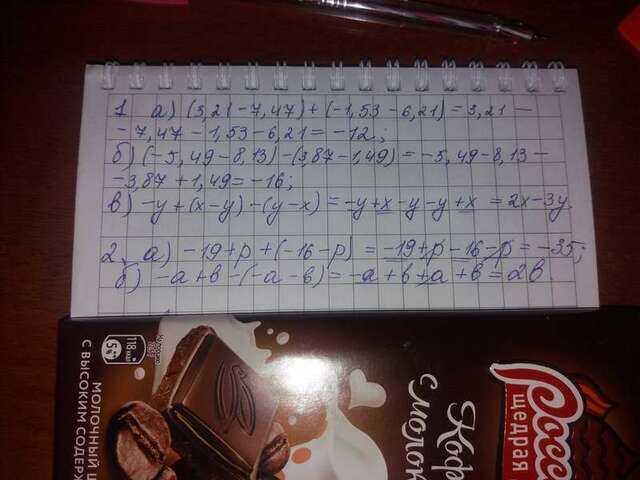 1 а) (3,21-7,47)+(-1,53-6,21)=3,21-
-7,47-1,53-6,21=-12;
б) (-5,49-8,13)-(3,87-1,49)=-5,49-8,13-
-3,87+1,49=-16;
в) -y+(x-y)-(y-x)=-y+x-y-y+x=2x-3y.
2. а) -19+p+(-16-p)=-19+p-16-p=-35;
б) -a+в-(-a-в)=-a+в+a+в=2в
118 ккал
5%
МОЛОЧНЫЙ
С ВЫСОКИМ СОДЕРЖ
Кофе
с молоко
Россия
щедрая